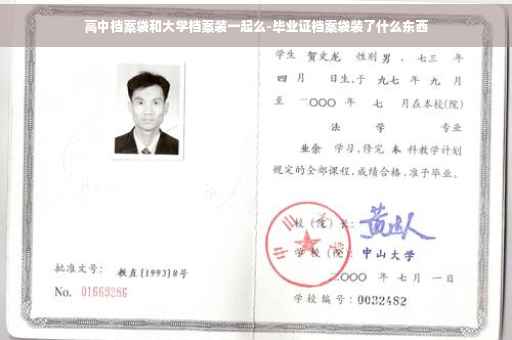 高中档案袋和大学档案装一起么-毕业证档案袋装了什么东西
学生 贺文龙 性别 男 、七三 年
四 月 日生,于 九七 年 九 月
至 二〇〇〇 年 七 月在本校(院)
法 学 专业
业余 学习,修完 本 科教学计划
规定的全部课程,成绩合格,准予毕业。
校(院)长:
学校(院): 中山大学
二〇〇〇 年 七 月 一 日
学校编号: 0032482
批准文号: 教直[1993]8号
No. 01669286